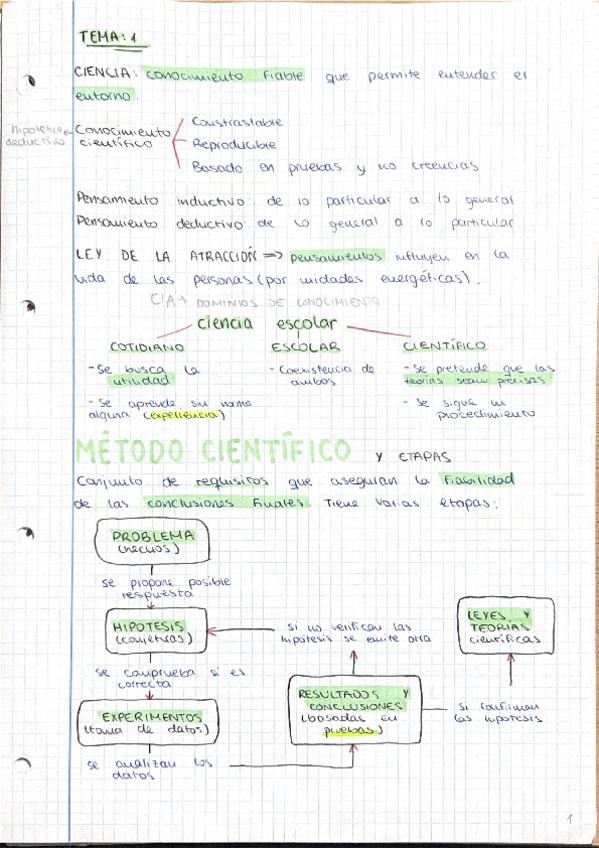 TEMA: 1
CIENCIA: conocimiento fiable que permite entender el
entorno.
hipotético deductivo
Conocimiento científico
Coustrastable
Reproducible
Basado en pruebas y no creencias
Pensamiento inductivo: de lo particular a lo general
Pensamiento deductivo: de lo general a lo particular
LEY DE LA ATRACCIÓN => pensamientos influyen en la
vida de las personas (por unidades energéticas).
C/A → DOMINIOS DE CONOCIMIENTO
ciencia escolar
COTIDIANO
- Se busca la
utilidad
- Se aprende sin norma
alguna (experiencia)
ESCOLAR
- Coexistencia de
ambos
CIENTÍFICO
- Se pretende que las
teorías sean precisas
- Se sigue un
procedimiento
MÉTODO CIENTÍFICO y ETAPAS
Conjunto de requisitos que aseguran la fiabilidad
de las conclusiones finales. Tiene varias etapas:
PROBLEMA
(hechos)
se propone posible
respuesta
HIPOTESIS
(conjeturas)
si no verifican las
hipótesis se emite otra
LEYES Y
TEORÍAS
científicas
se comprueba si es
correcta
EXPERIMENTOS
(toma de datos)
RESULTADOS Y
CONCLUSIONES
(basadas en
pruebas)
si confirman
las hipótesis
se analizan los
datos
1